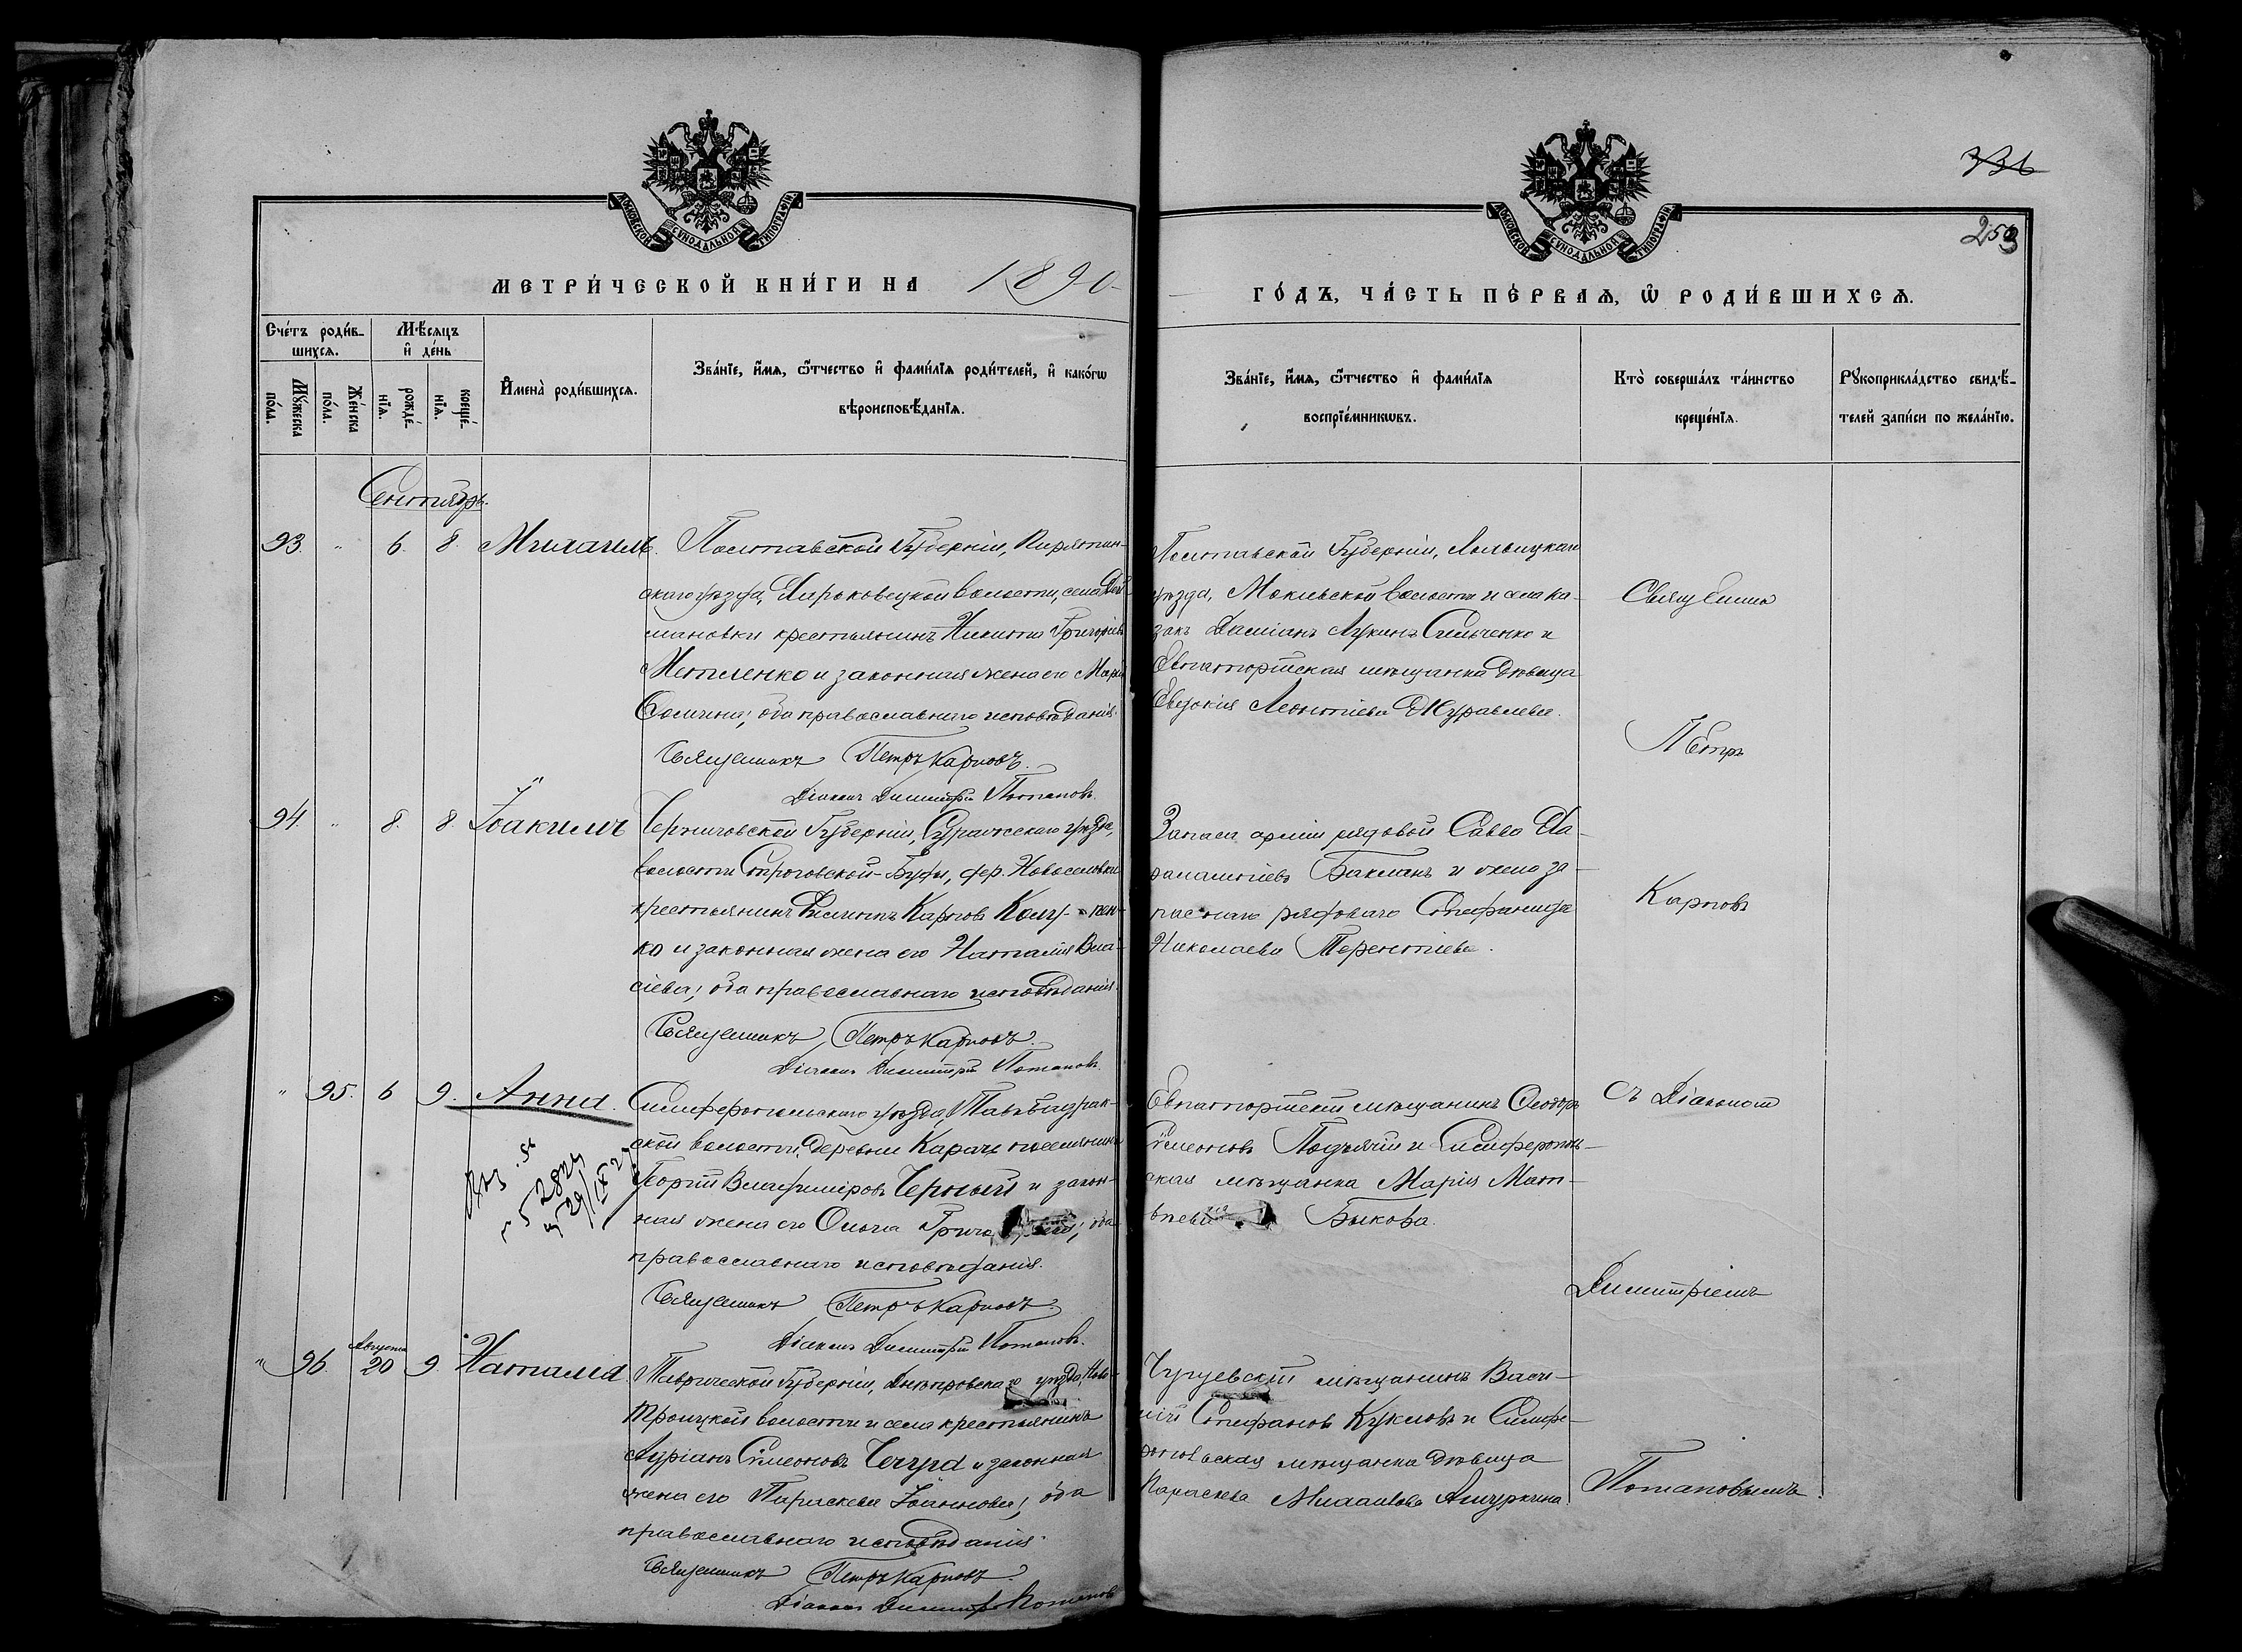 336
253
МОСКОВСКОЙ СѴНОДАЛЬНОЙ ТИПОГРАФІИ
МОСКОВСКОЙ СѴНОДАЛЬНОЙ ТИПОГРАФІИ
МЕТРИ́ЧЕСКОЙ КНИ́ГИ НА 1890
ГО́ДЪ, ЧА́СТЬ ПЕ́РВАѦ, Ѽ РОДИ́ВШИХСѦ.
Сче́тъ роди́в-
шихсѧ.
Мꙋ́жеска
по́ла.
Же́нска
по́ла.
Мѣ́сѧцъ
и҆ де́нь
рожде́-
нїѧ.
креще́-
нїѧ.
И҆мена̀ роди́вшихсѧ.
Зва́нїе, и҆́мѧ, ѻ҆́тчество и҆ фами́лїѧ роди́телей, и҆ како́гѡ
вѣроисповѣ́данїѧ.
Зва́нїе, и҆́мѧ, ѻ҆́тчество и҆ фами́лїѧ
воспрїе́мникѡвъ.
Кто̀ соверша́лъ та́инство
креще́нїѧ.
Рꙋкоприкла́дство свидѣ́-
телей за́писи по жела́нїю.
Сентябрь.
93. „ 6. 8. Михаилъ. Полтавской Губерніи, Пирятин-
скаго уѣзда, Кирьковецкой волости, села
мановки крестьянинъ Никита Григорьевъ
Метленко и законная жена его Марія
; оба православнаго исповѣданія.
Священникъ Петръ Карповъ.
Діаконъ Димитрій Потаповъ.
Полтавской Губерніи, Лохвицкаго
уѣзда, волости и села ка-
закъ Даміанъ Лукинъ Сильченко и
Евпаторійская мѣщанка дѣвица
Евдокія Леонтіева Журавлева.
94. „ 8. 8. Іоакимъ Черниговской Губерніи, Суражскаго уѣзда,
волости Строговской-Буды, дер. Новоселовки
крестьянинъ Филиппъ Карповъ
ко и законная жена его Наталія Вла-
сіева; оба православнаго исповѣданія.
Священникъ Петръ Карповъ.
Діаконъ Димитрій Потаповъ.
Запаса арміи рядовой Савва
Бакланъ и жена за-
паснаго рядоваго Стефанида
Николаева Терентіева.
„ 95. 6 9. Анна. Симферопольскаго уѣзда, Табъ-
ской волости, деревни Карачъ поселянинъ
Георгій Владиміровъ Черный и закон-
ная жена его Ольга ; оба
православнаго исповѣданія.
Священникъ Петръ Карповъ.
Діаконъ Димитрій Потаповъ.
Евпаторійскій мѣщанинъ Ѳеодоръ
Сѵмеоновъ Подъячій и Симферополь-
ская мѣщанка Марія Мат-
вѣева Быкова.
29/IX 27
„ 96. Августа 20 9. Наталія. Таврической Губерніи, Днѣпровскаго уѣзда, Ново-
Троицкой волости и села крестьянинъ
Сѵмеоновъ Чечура и законная
жена его Параскева Іоаннова; оба
православнаго исповѣданія.
Священникъ Петръ Карповъ.
Діаконъ Димитрій Потаповъ
Чугуевскій мѣщанинъ Васи-
лій Стефановъ Куклов и Симфе-
ропольская мѣщанка дѣвица
Параскева Михаилова
Священникъ
Петръ
Карповъ
съ Діакономъ
Димитріемъ
Потаповымъ.